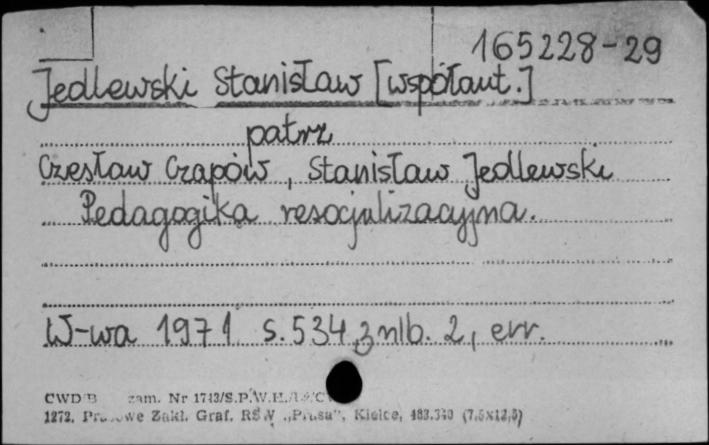 165228-29
Jedlewski Stanisław [współaut.]
patrz
Czesław Czapów, Stanisław Jedlewski
Pedagogika resocjalizacyjna.
W-wa 1971 s. 534, 3 nlb. 2, err.
zam. Nr 1743/S.P.W.H.
1272. Zakł. Graf. RSW „Prasa”, Kielce,